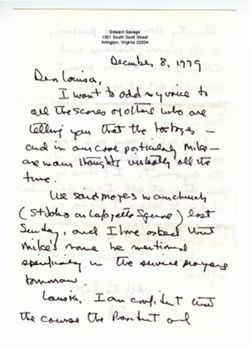 Edward Savage
1301 South Scott Street
Arlington, Virginia 22204
December 8, 1979
Dear Louisa,
I want to add my voice to
all the scores of others who are
telling you that the hostages —
and in our case particularly Mike —
are in our thoughts virtually all the
time.
We said prayers in our church
(St John's on Lafayette Square) last
Sunday, and I have asked that
Mike's name be mentioned
specifically in the service prayers
tomorrow.
Louisa, I am confident that
the course the President and